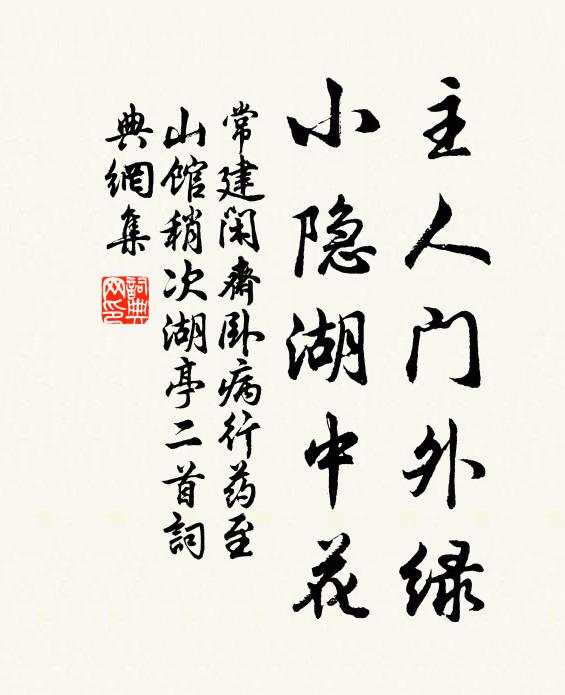 主人门外绿
小隐湖中花
常建闲斋卧病行药至
山馆稍次湖亭二首詞
典網集
詞典網印